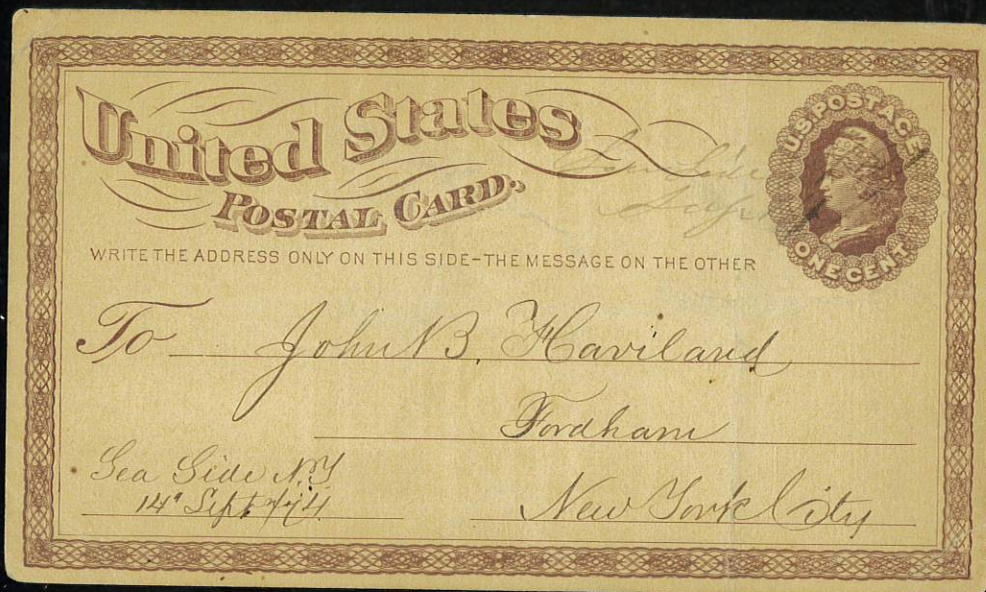 United States
POSTAL CARD.
U.S. POSTAGE
ONE CENT
WRITE THE ADDRESS ONLY ON THIS SIDE-THE MESSAGE ON THE OTHER
To John B. Haviland
Fordham
Sea Side N.Y
14" Sept 74
New York City